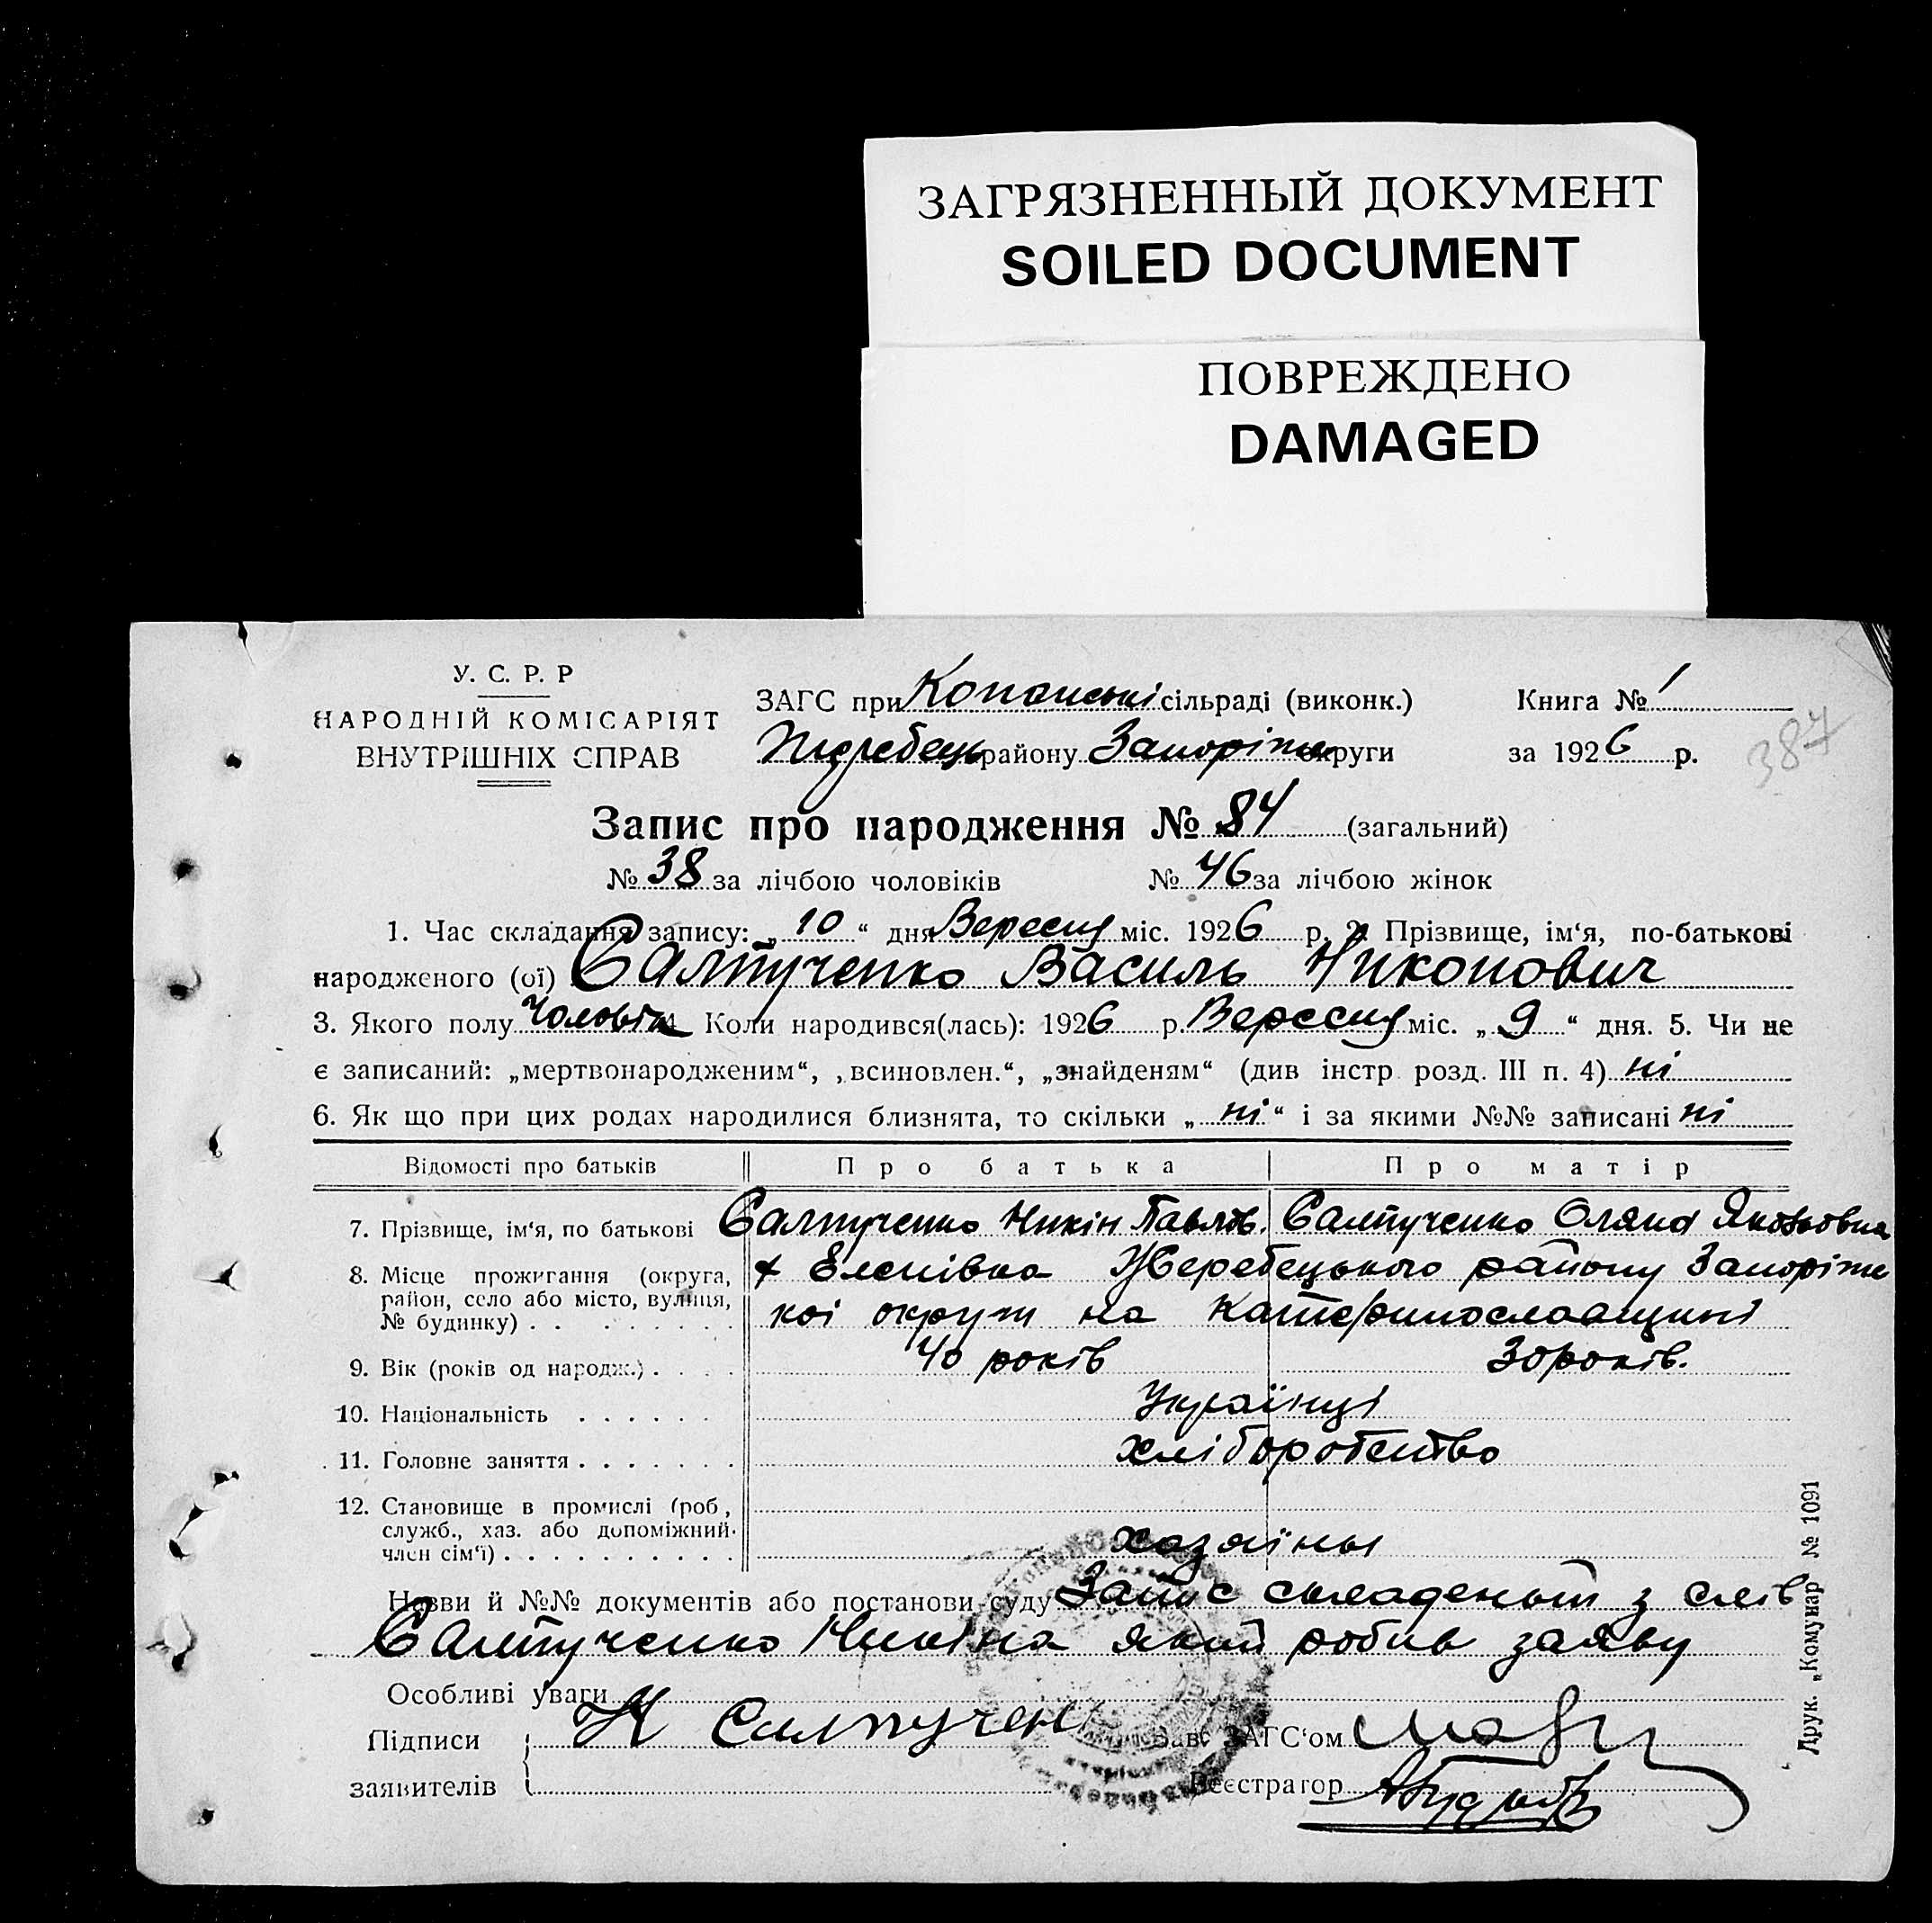 ЗАГРЯЗНЕННЫЙ ДОКУМЕНТ
SOILED DOCUMENT
ПОВРЕЖДЕНО
DAMAGED
У. С. Р. Р
НАРОДНІЙ КОМІСАРІЯТ
ВНУТРІШНІХ СПРАВ
ЗАГС при Копанські сільраді (виконк.)
району Запоріж округи
Книга № 1
за 1926 р.
387
Запис про народження № 84 (загальний)
№ 38 за лічбою чоловіків № 46 за лічбою жінок
1. Час складання запису: „ 10 “ дня Вересня міс. 1926 р. 2. Прізвище, ім‘я, по-батькові
народженого (ої) Салтученко Василь Никонович
3. Якого полу Чоловіч 4 Коли народився(лась): 1926 р. Вересня міс. „ 9 “ дня. 5. Чи не
є записаний: „мертвонародженим“, „всиновлен.“, „знайденям“ (див інстр розд. III п. 4) ні
6. Як що при цих родах народилися близнята, то скільки „ ні “ і за якими №№ записані ні
Відомості про батьків Про батька Про матір
7. Прізвище, ім‘я, по батькові Салтученко Никін Павлов. Салтученко Оляна Яковьовна
8. Місце прожигання (округа, район, село або місто, вулиця, № будинку) . . х Еленівка Жеребецького району Запоріж
кої округи на Катеринославщині
9. Вік (років од народж.) . . . . 40 років 30 років.
10. Національність . . . . . . Українці
11. Головне заняття . . . . . . . хліборобство
12. Становище в промислі (роб, служб., хаз. або допоміжний член сім‘ї) . . . . . . . . . . хазяїны
Назви й №№ документів або постанови суду Запис складеный з слів
Салтученко Никіна який робив заяву
Особливі уваги
Підписи Н Салтучен Зав. ЗАГС‘ом
заявителів Реєстратор
Друк. „Комунар № 1091